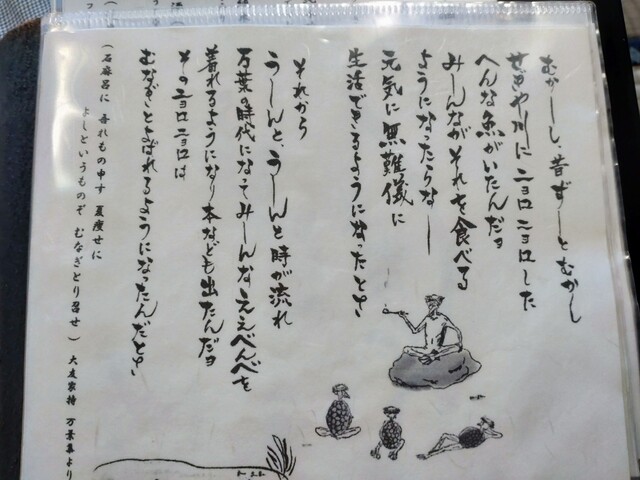 むかーしし、昔ずーっとむかし
せきや川にニョロニョロした
へんな魚がいたんだョ
みーんながそれを食べる
ようになったらなー
元気に無難儀に
生活できるようになったとさ
それから
うーんと、うーんと時が流れ
万葉の時代になってみーんないええべんべを
着れるようになり本なども出たんだョ
そのニョロニョロは
むなぎとよばれるようになったんだとさ
(石麻呂に 吾れもの申す 夏痩せに
よしというものぞ むなぎとり召せ) 大友家持 万葉集より